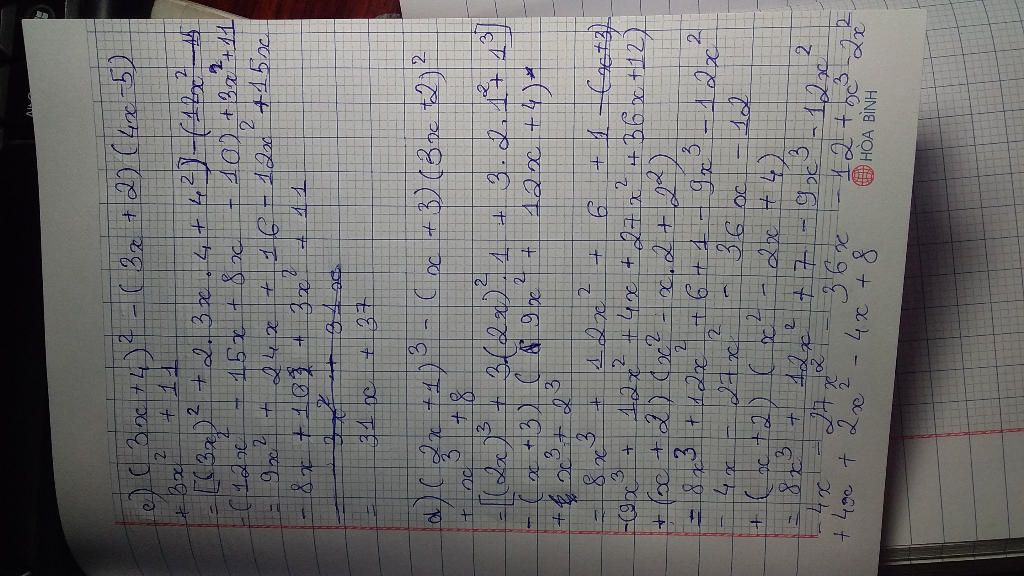 c) (3x+4)² - (3x+2)(4x-5)
+ 3x² + 11
= [(3x)² + 2.3x.4 + 4²] - (12x²
- (12x² - 15x + 8x - 10) + 3x² + 11
= 9x² + 24x + 16 - 12x² + 15x
- 8x + 10 + 3x² + 11
= 31x + 37
d) (2x+1)³ - (x+3)(3x+2)²
+ x³ + 8
= [(2x)³ + 3(2x)².1 + 3.2.1² + 1³]
- (x+3) (9x² + 12x + 4)
+ x³ + 2³
= 8x³ + 12x² + 6 + 1
- (9x³ + 12x² + 4x + 27x² + 36x + 12)
+ (x+2)(x² - x.2 + 2²)
= 8x³ + 12x² + 6 + 1 - 9x³ - 12x²
- 4x - 27x² - 36x - 12
+ (x+2)(x² - 2x + 4)
= 8x³ + 12x² + 7 - 9x³ - 12x²
- 4x - 27x² - 36x - 12 + x³ - 2x²
+ 4x + 2x² - 4x + 8
HOA BINH